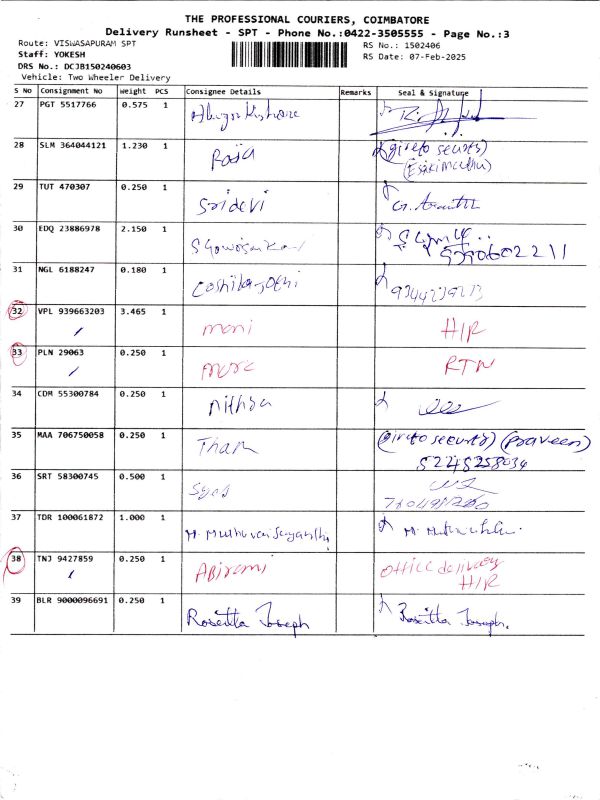 THE PROFESSIONAL COURIERS, COIMBATORE
Delivery Runsheet - SPT - Phone No.:0422-3505555 - Page No.:3
Route: VISWASAPURAM SPT
Staff: YOKESH
DRS No.: DCJB150240603
Vehicle: Two Wheeler Delivery
RS No.: 1502406
RS Date: 07-Feb-2025
S No Consignment No Weight PCS Consignee Details Remarks Seal & Signature
27 PGT 5517766 0.575 1
28 SLM 364044121 1.230 1 Raja (gireto security)
(Esakimuthu)
29 TUT 470307 0.250 1 Sridevi
30 EDQ 23886978 2.150 1
31 NGL 6188247 0.180 1
32 VPL 939663203 3.465 1 mani H/R
33 PLN 29063 0.250 1 RTN
34 CDM 55300784 0.250 1 Nithya
35 MAA 706750058 0.250 1 (gireto security) (praveen)
36 SRT 58300745 0.500 1
37 TDR 100061872 1.000 1
38 TNJ 9427859 0.250 1 Abirami office delivery
H/R
39 BLR 9000096691 0.250 1 Rositta Joseph Rositta Joseph.